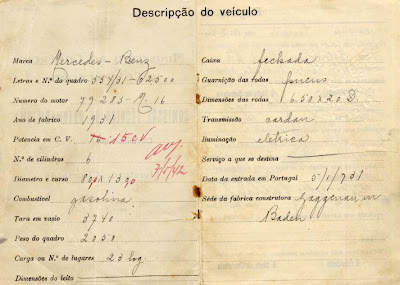 Descripção do veículo
Marca Mercedes-Benz
Letras e N.º do quadro 557/31-62500
Numero do motor 79203-N.16
Ano de fabrico 1931
Potencia em C. V. 15 CV
N.º de cilindros 6
7/5/42
Diametro e curso
Combustivel gasolina
Tara em vasio 3740
Peso do quadro 2050
Carga ou N.º de lugares 23 log.
Dimensões do leito
Caixa fechada
Guarnição das rodas pneus
Dimensões das rodas 650X20 D.
Transmissão cardan
Iluminação eletrica
Serviço a que se destina
Data da entrada em Portugal 5/1/931
Séde da fabrica construtora Gaggenau in
Baden